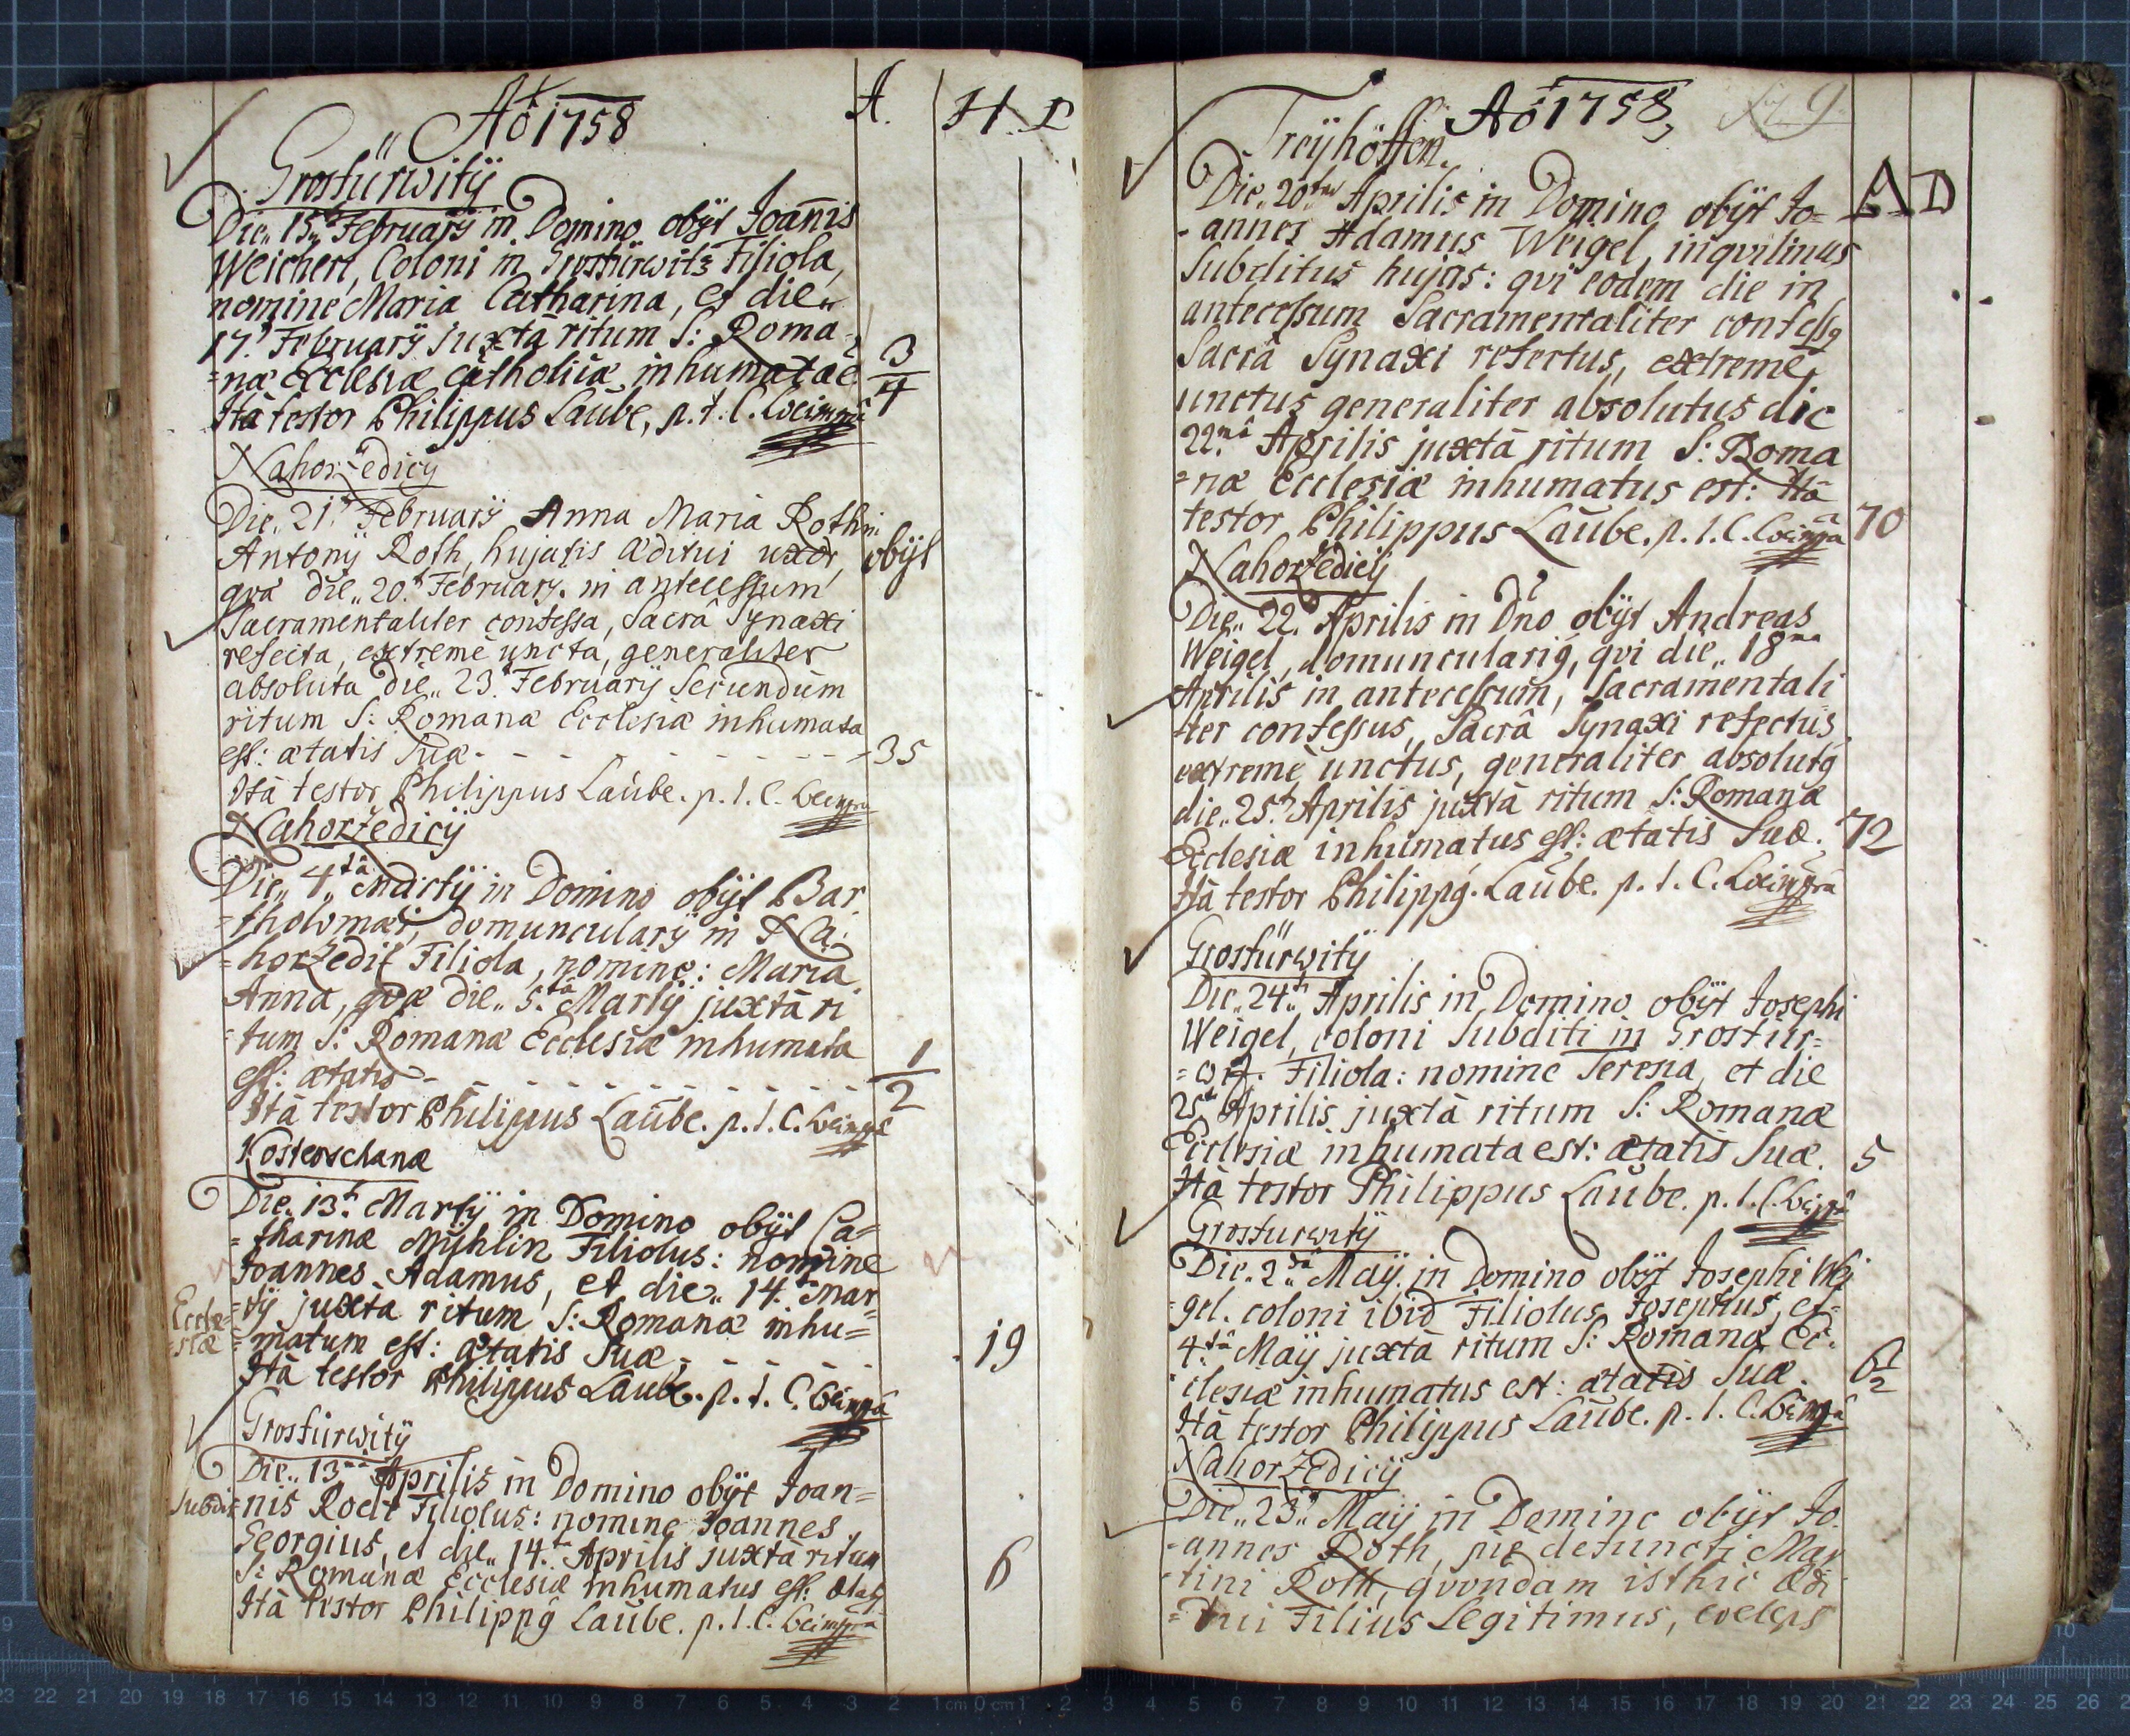 Aö 1758
A. H. D
Grosfürwitÿ
Die 15ta Februarÿ in Domino obÿt Joannis
Weichert, Coloni in Grosfürwitz Filiola,
nomine Maria Catharina, et die
17a Februarÿ juxtà ritum S: Roma-
=næ Ecclesiæ Catholicæ inhumata e. 3/4
Ità testor Philippus Laübe, p. t. C.
Nahoržedicÿ
Die 21a Februarÿ Anna Maria Rothin
Antonÿ Roth, hujatis æditui uxor, obÿt
qvæ die 20a Februarÿ. in antecessum
Sacramentaliter confessa, Sacrâ Synaxi
refecta, extremè ùncta, generaliter
absoluta die 23a Februarÿ Secundùm
ritum S: Romanæ Ecclesiæ inhumata
est: ætatis Suæ - - - - - - - - - 35
Ità testor Philippus Laübe. p. t. C.
Nahoržedicÿ
Die 4tâ Martÿ in Domino obÿt Bar
=tholomæi, domuncularÿ in Na:
=horžedit Filiola, nomine: Maria
Anna, qvæ die 5tâ Martÿ juxtà ri
=tum S: Romanæ Ecclesiæ inhumata
est: ætatis - - - - - - - - - 1/2
Ità testor Philippus Laübe. p. t. C.
Kosteoschanæ
Die 13a Martÿ in Domino obÿt Ca=
=tharinæ Mÿhlin Filiolus: nomine
Joannes Adamus, et die 14a Mar=
=tÿ juxta ritum S: Romanæ inhu=
Eccle=
=siæ
=matum est: ætatis Suæ - - - - - 19
Ità testor Philippus Laübe. p. t. C.
Grosfürwitÿ
Die 13na Aprilis in Domino obÿt Joan=
Subdit
nis Roelt Filiolus: nomine Joannes
Georgius, et die 14a Aprilis juxtà ritum
S: Romanæ Ecclesiæ inhumatus est: ætatis 6
Ità testor Philippg Laübe. p. t. C.
Aö 1758
9.
Treÿhöffen.
A D
Die 20ma Aprilis in Domino obÿt Jo=
-annes Adamus Weigel, inqvilinus
Subditus hujas: qvi eodem die in
antecessum Sacramentaliter confessg
Sacrâ Synaxi refectus, extremè
unctus generaliter absolutus die
22mâ Aprilis juxtà ritum S: Roma
=næ Ecclesiæ inhumatus est: Ità
testor Philippus Laübe. p. t. C. 70
Nahoržedicÿ
Die 22a Aprilis in Dno obÿt Andreas
Weigel, domunculariq, qvi die 18na
Aprilis in antecessum, Sacramentali
ter confessus, Sacrâ Synaxi refectus
extremè ùnctus, generaliter absolutg
die 25a Aprilis juxtà ritum S: Romanæ
Ecclesiæ inhumatus est: ætatis Suæ. 72
Ità testor Philippg. Laübe. p. t. C.
Grosfürwitÿ
Die 24a Aprilis in Domino obÿt Josephi
Weigel, coloni Subditi in Grosfür=
=witz. Filiola: nomine Teresia, et die
25a Aprilis juxtà ritum S: Romanæ
Ecclesiæ inhumata est: ætatis Suæ. 5
Ità testor Philippus Laübe. p. t. C.
Grosfurwitÿ
Die 2dâ Maÿ. in Domino obÿt Josephi Wei
=gel. coloni ibid Filiolus Josephus, et
4tâ Maÿ juxtà ritum S: Romanæ Ec=
clesiæ inhumatus est: ætatis Suæ. 6/2
Ità testor Philippus Laübe. p. t. C.
Nahoržedicÿ
Die 23a Maÿ in Domino obÿt Jo
-annes Roth, piè defuncti Mar
-tini Roth, qvondam isthic ædi
=tui Filius Legitimus, cœlebs